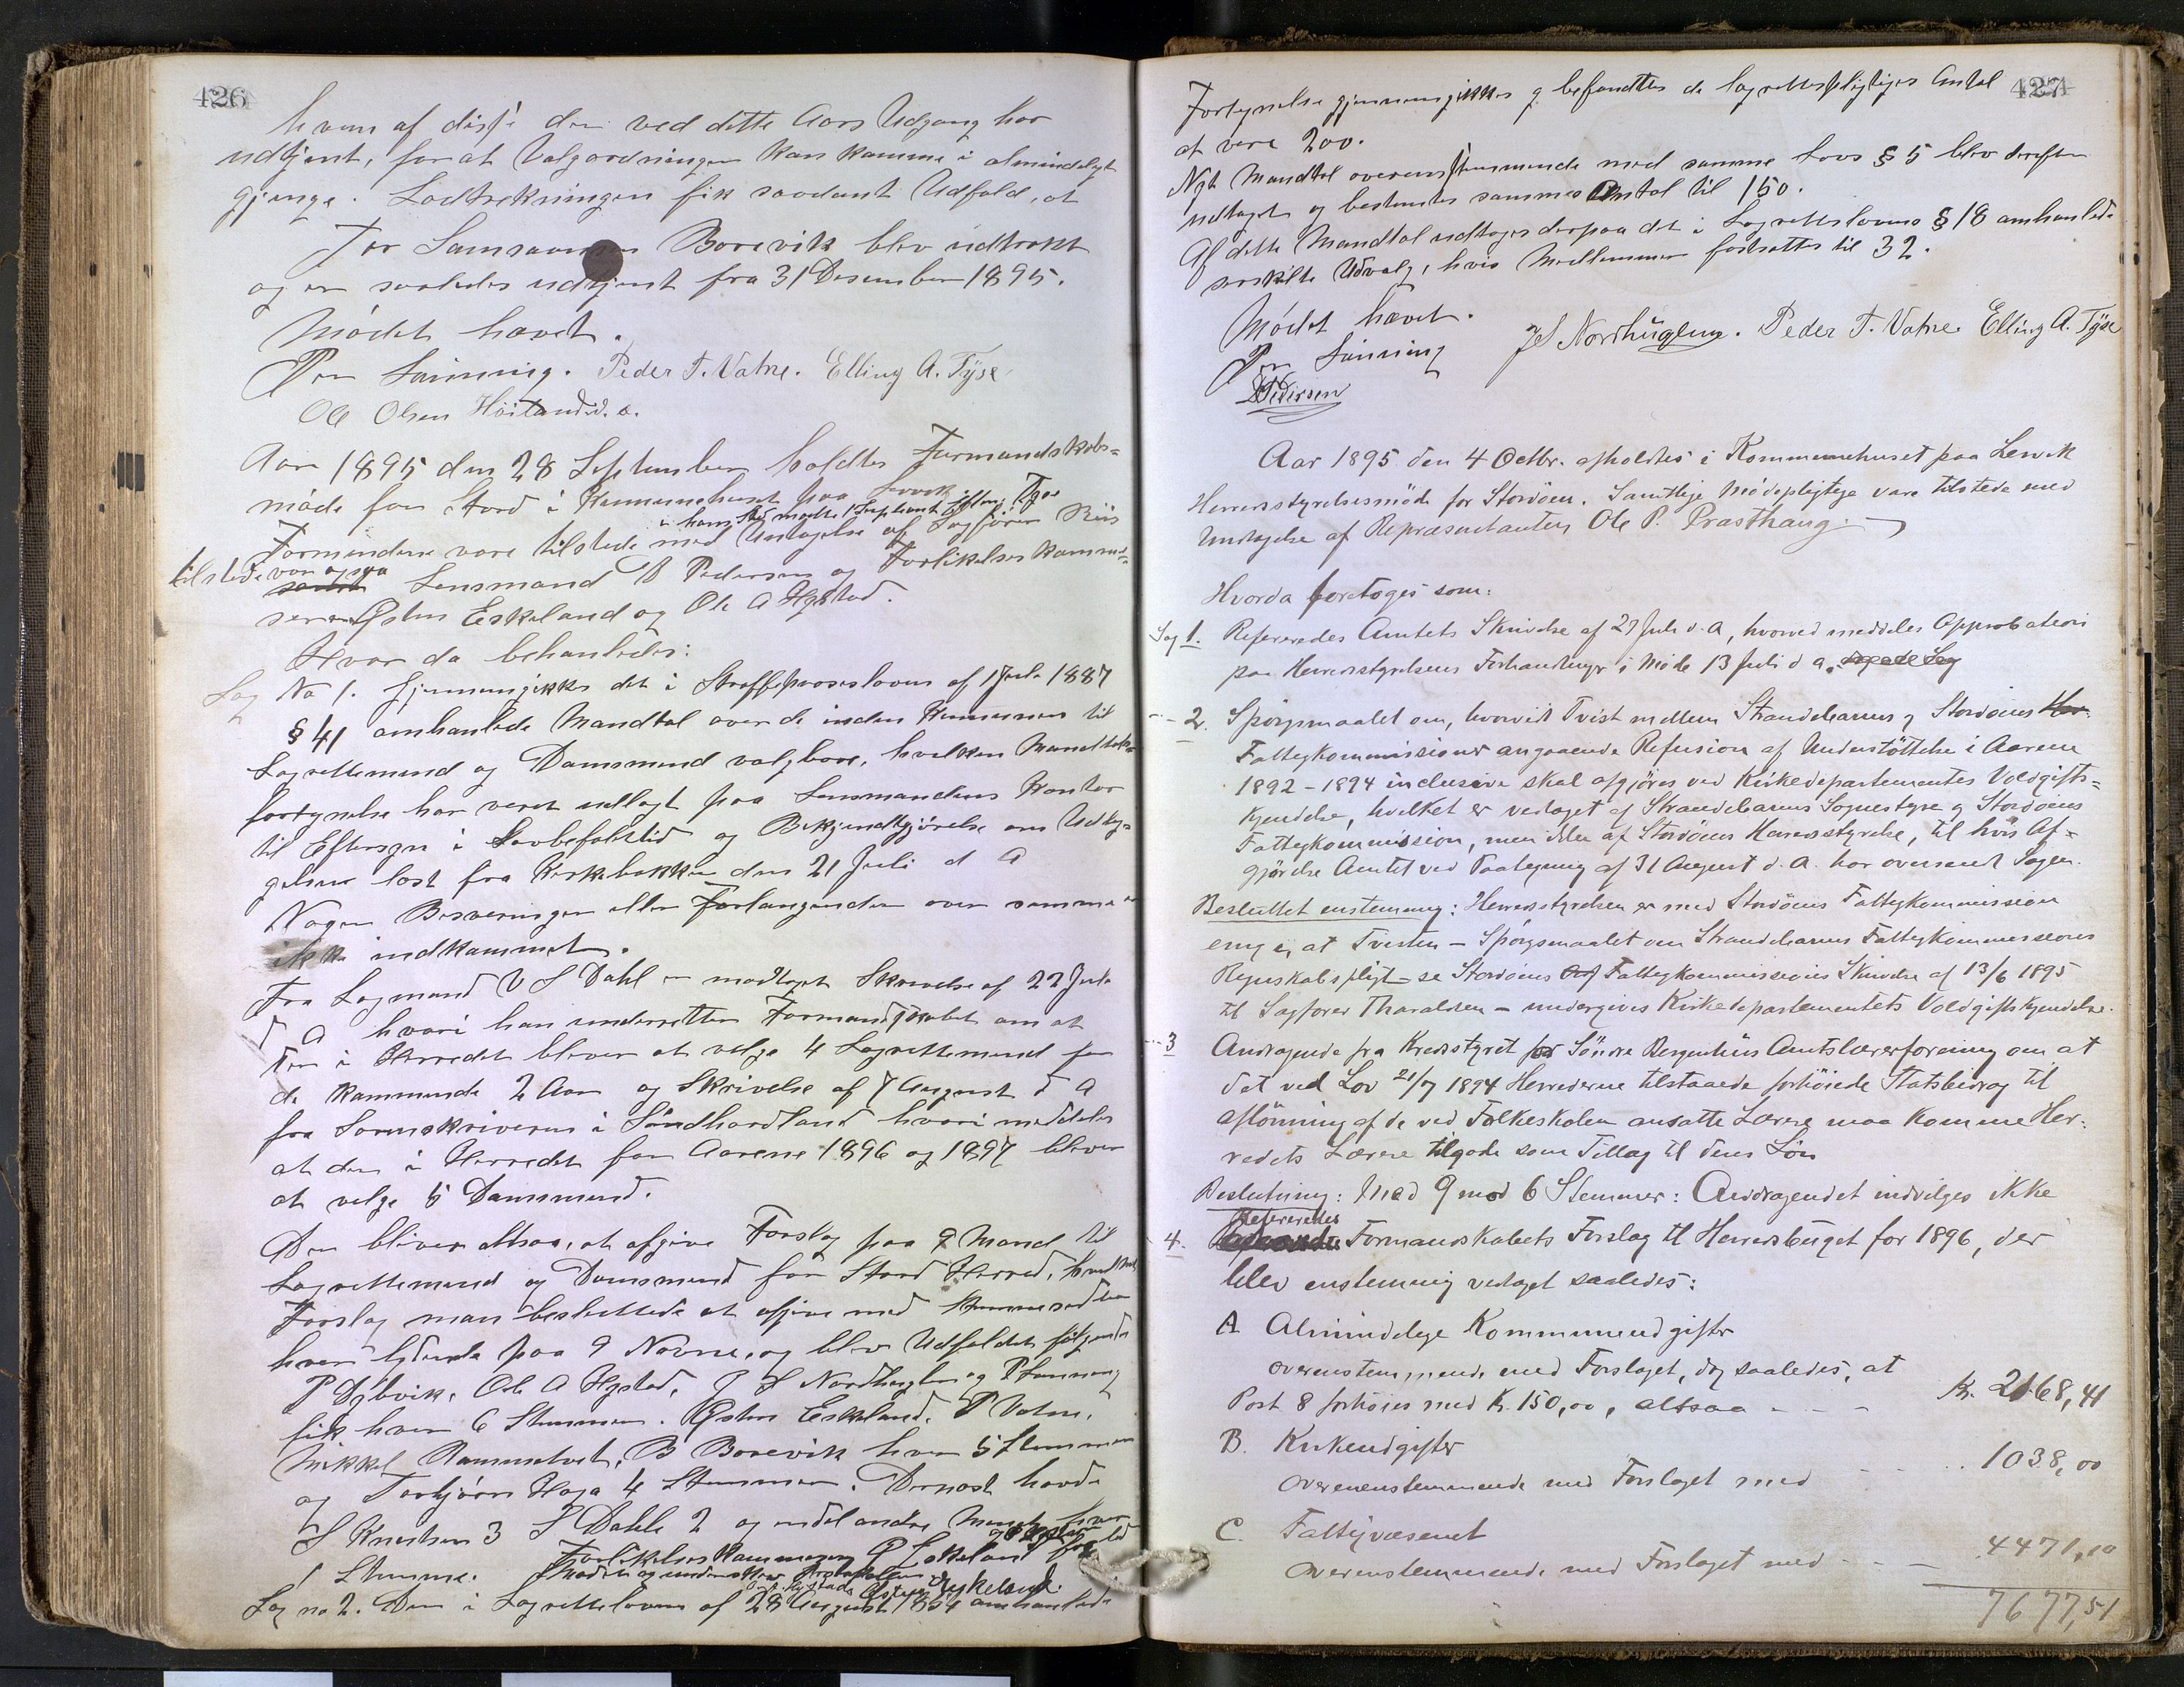 426
hvem af disse der ved dette Aars Udgang har
udtjent, for at Valgordningen kan komme i almindeligt
gjenge. Lodtrekningen fik saadant Udfald, at
Tor Samsonsen Borevik blev udtrokt
og er saaledes udtjent fra 31 Desember 1895.
Mödet hævet.
Per Lönning. Peder T. Vatne. Elling A. Tyse
Ole Olsen Höiland
Aar 1895 den 28 September holdtes Formandskabs-
möde for Stord i Kommunehuset paa Lervik
i hans Sted mødte Supleant Elling Tyse
Formendene vare tilstede med Untagelse af Sagförer Riis
tilstede var ogsaa
Lensmand B Pedersen og Forlikelseskommi-
serer Østen Eskeland og Ole A Hystad.
Hvor da behanledes:
Sag No 1. Gjennemgikkes det i Straffeproseslovens af 1 Juli 1887
§ 41 omhanlede Mandtal over de inden Kommunen til
Lagrettemend og Domsmend valgbare, hvilken Mandtals-
fortynelse har veret udlagt paa Lensmandens Kontor
til Eftersyn i Lovbefalt tid og Bekjendtgjörelse om Udleg-
gelsen lest fra Kirkebakken den 21 Juli d A
Nogen Besveringer eller Forlangender over samme er
ikke indkommet.
Fra Lagmand V S Dahl er modtaget Skrivelse af 22 Juli
d A hvori han underretter Formandskabet om at
der i Herredet bliver at velge 4 Lagrettemend for
de kommende 2 Aar og Skrivelse af 7 August d A
fra Sorenskriveren i Söndhordland hvori meddeles
at der i Herredet for Aarene 1896 og 1897 bliver
at velge 5 Domsmend.
Der bliver altsaa, at afgive Forslag paa 9 Mand til
Lagrettemend og Domsmend for Stord Herred, hvilket
Forslag man besluttede at afgive med Stemmesedler
hver lydende paa 9 Navne, og blev Udfaldet fölgende
P Dybvik, Ole A Hystad, J S Nordhuglen og P Lönning
fik hver 6 Stemmer. Østen Eskeland, P Vatne,
Mikkel Rommetvet, B Borevik hver 5 Stemmer
og Torbjörn Haga 4 Stemmer. Dernest havde
S Knutsen 3 S Dahle 2 og endel andre Mend hver
1 Stemme. Forlikelseskommissær Ø Eskeland
Østen Eskeland.
Sag no 2. Den i Lagretteloven af 28 August 1854 omhanlede
427
Fortynelse gjennemgikkes og befandtes de lagrettespligtiges Antal
at vere 200.
Nyt Mandtal overensstemmende med samme Lovs § 5 blev derefter
udtaget og bestemtes sammes Antal til 150.
Af dette Mandtal udtoges derpaa det i Lagrettelovens § 18 omhanlede
serskilte Udvalg, hvis Medlemmer fastsattes til 32.
Mödet hævet.
Per Lönning JS Nordhuglen. Peder T. Vatne. Elling A. Tyse
B Pedersen
Aar 1895 den 4 Octbr. afholdtes i Kommunehuset paa Lervik
Herredsstyrelsesmöde for Stordöen. Samtlige Mödepligtige vare tilstede med
Undtagelse af Repræsentanten Ole P. Præsthaug.
Hvorda foretoges som:
Sag 1. Refereredes Amtets Skrivelse af 27 Juli d. A, hvorved meddeles Approbation
paa Herredsstyrelsens Forhandlinger i Möde 13 Juli d a.
--- 2. Spörgsmaalet om, hvorvidt Tvist mellem Strandebarms og Stordöens
Fattigkommissioner angaaende Refusion af Understöttelse i Aarene
1892-1894 inclusive skal afgjöres ved Kirkedepartementets Voldgifts-
kjendelse, hvilket er vedtaget af Strandebarms Sognestyre og Stordöens
Fattigkommission, men ikke af Stordöens Herredsstyrelse, til hvis Af-
gjörelse Amtet ved Paategning af 31 August d. A. har oversendt Sagen.
Besluttet enstemmig: Herredsstyrelsen er med Stordöens Fattigkommission
enig i, at Tvisten - Spörgsmaalet om Strandebarms Fattigkommissions
Regnskabspligt - se Stordöens Fattigkommissions Skrivelse af 13/6 1895
til Sagförer Tharaldsen - undergives Kirkedepartementets Voldgiftskjendelse.
--- 3 Andragende fra Kredsstyret for Söndre Bergenhus Amtslærerforening om at
det ved Lov 21/7 1894 Herrederne tilstaaede forhöiede Statsbidrag til
aflönning af de ved Folkeskolen ansatte Lærere maa komme Her-
redets Lærere tilgode som Tillæg til deres Lön
Beslutning: Med 9 mod 6 Stemmer: Andragendet indvilges ikke
Refereredes
4. Formandskabets Forslag til Herredsbudget for 1896, der
blev enstemmig vedtaget saaledes:
A Almindelige Kommuneudgifter
overenstemmende med Forslaget, dog saaledes, at
Post 8 forhöies med Kr. 150,00, altsaa - - - Kr. 2168,41
B. Kirkeudgifter
overenenstemmende med Forslaget med - - - 1038,00
C. Fattigvæsenet
overenstemmende med Forslaget med - - - 4471,10
7677,51